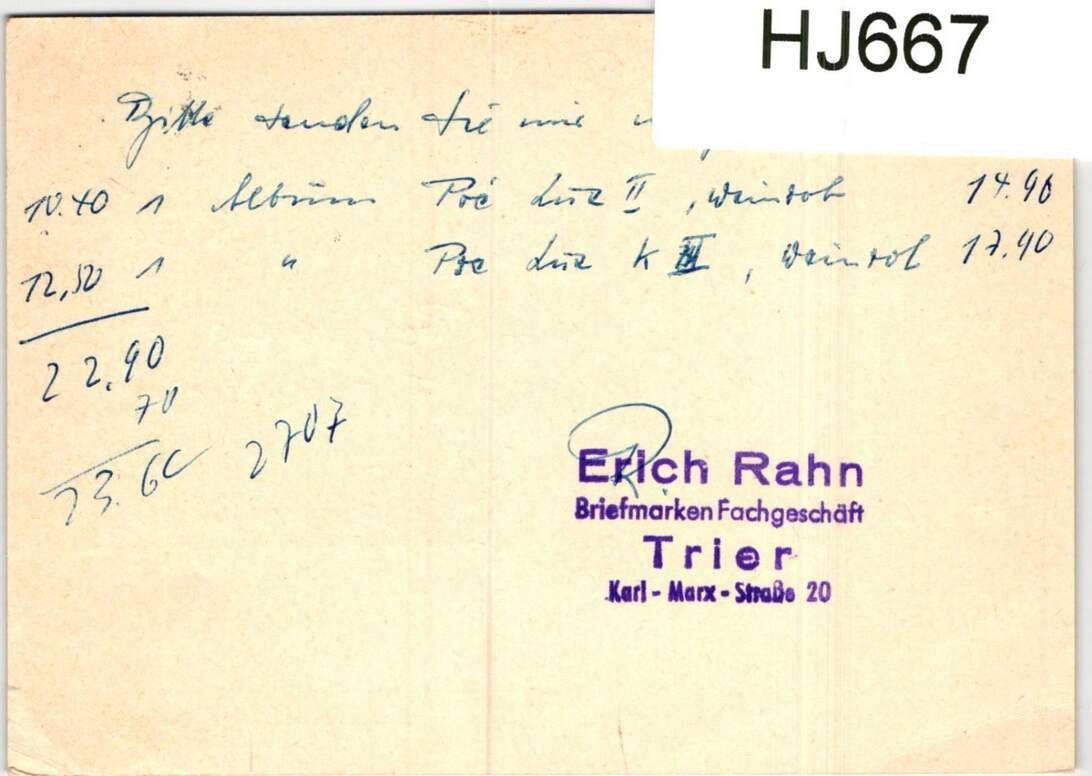 HJ667
Bitte senden Sie mir
10.40 1 Album Pré Lux II, weinrot 14.90
12,50 1 " Pré Lux K III, weinrot 17.90
22.90
70
23.60 2707
Erich Rahn
Briefmarken Fachgeschäft
Trier
Karl-Marx-Straße 20